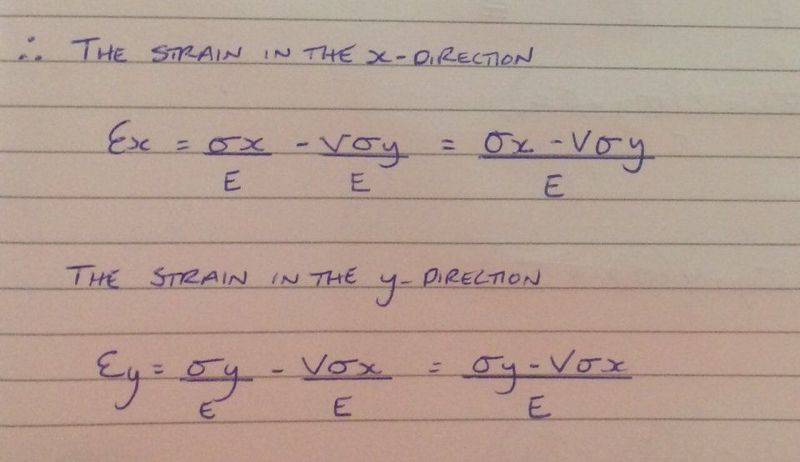 ∴ THE STRAIN IN THE x-DIRECTION
εx = σx/E - Vσy/E = σx - Vσy/E
THE STRAIN IN THE y-DIRECTION
εy = σy/E - Vσx/E = σy - Vσx/E